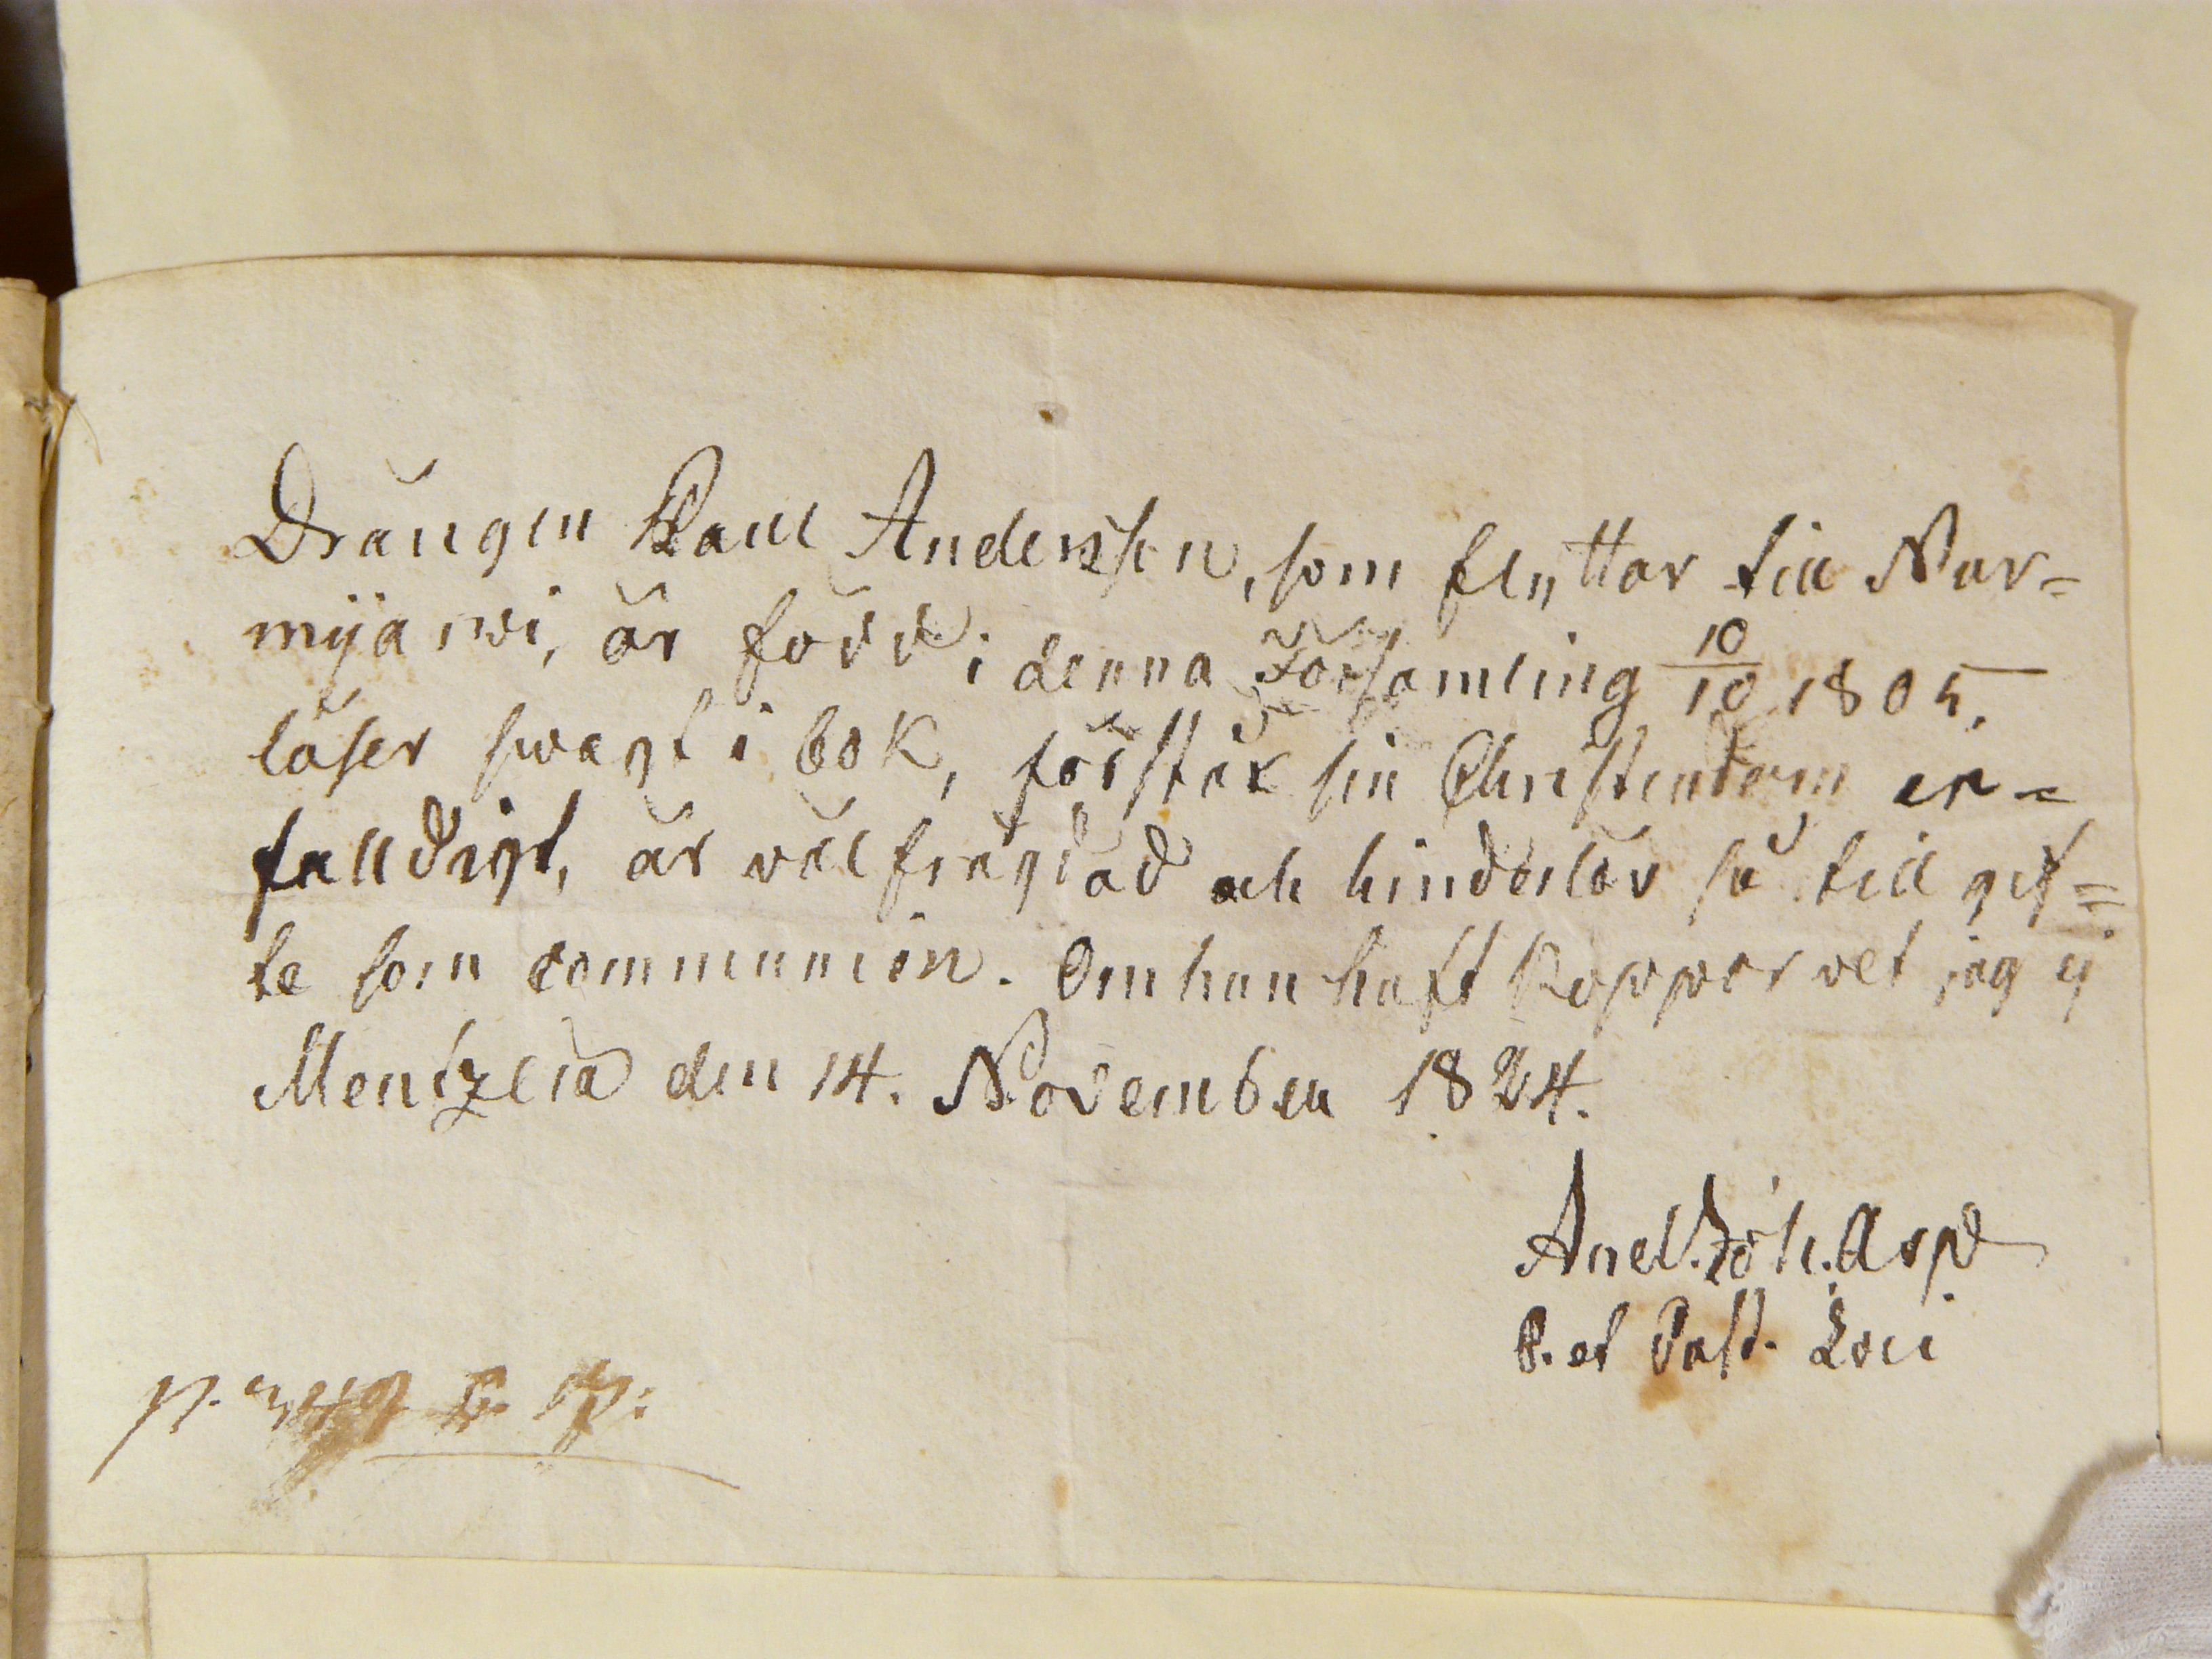 Drängen Paul Andersson, som flyttar till Nur=
mijärwi, är född i denna Församling 10/10 1805,
läser swagt i bok, förstår sin Christendom en=
falldigt, är wälfrägdad och hinderlös så till gif=
te som communion. Om han haft koppor vet jag ej
Mentzelä den 14. November 1824.
And. Joh. Arp
P. et Past. Loci
p. 349